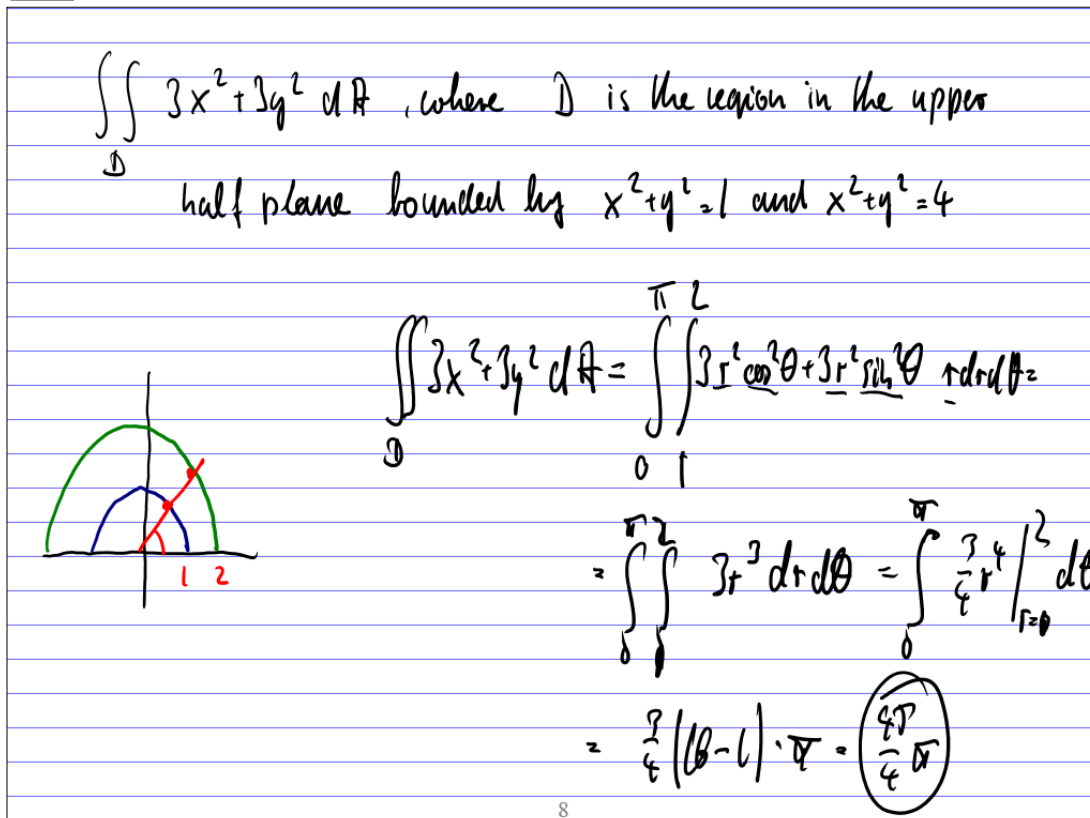 ∬_D 3x² + 3y² dA , where D is the region in the upper
half plane bounded by x² + y² = 1 and x² + y² = 4
∬_D 3x² + 3y² dA = ∫_0^π ∫_1^2 3r² cos²θ + 3r² sin²θ r dr dθ =
1 2
= ∫_0^π ∫_1^2 3r³ dr dθ = ∫_0^π 3/4 r⁴ |_{r=1}^2 dθ
= 3/4 (16 - 1) · π = 45/4 π
8